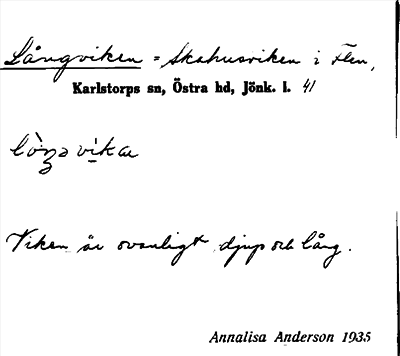 Långviken = Skahusviken i Flen,
Karlstorps sn, Östra hd, Jönk. l. 41
Viken är ovanligt djup och lång.
Annalisa Anderson 1935